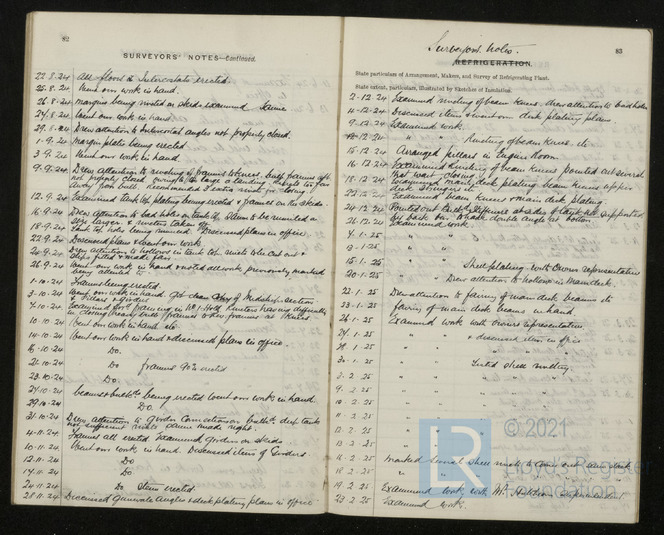 82
SURVEYORS' NOTES—Continued.
22.8.24 All floors & Intercostals erected.
25.8.24 Went over work in hand.
26.8.24 Margins being riveted on skids examined same
27.8.24 Went over work in hand.
29.8.24 Drew attention to Intercostal angles not properly closed.
1.9.24 Margin plate being erected.
3.9.24 Went over work in hand.
9.9.24 Drew attention to riveting of frames to knees. bulb frames off
not properly closed owing to the large a landing, heights too far
away from bulb. Recommended 1 extra rivet for closing.
12.9.24 Examined tank top plating being erected & frames on the skids.
16.9.24 Drew attention to bad holes in tank top. Same to be rimered in
size larger & rivets taken up.
18.9.24 Tank top holes being rimered. Discussed plans in office.
22.9.24 Discussed plans & went over work.
24.9.24 Drew attention to hollows in tank top. rivets to be cut out &
strips fitted & made fair.
26.9.24 Went over work in hand & noted all work previously marked
being attended to.
1.10.24 Frames being erected.
3.10.24 Went over work in hand. Got copy of Midship section
& Pillars & Girders
10.10.24 Went over work in hand etc
14.10.24 Went over work in hand & discussed plans in office.
16.10.24 Do.
21.10.24 Do frames 90% erected
23.10.24 Do.
27.10.24 beams & bulkhds being erected went over work in hand.
29.10.24 Do.
31.10.24 Drew attention to Girder Connections on bulkhd. deep tank
not sufficient rivets same made right.
4.11.24 Frames all erected Examined Girders on skids.
10.11.24 Went over work in hand. Discussed items of Girders
12.11.24 Do
14.11.24 Do
24.11.24 Do Stem erected
28.11.24 Discussed Gunwale Angles & deck plating plans in office
83
Surveyors Notes.
REFRIGERATION
State particulars of Arrangement, Makers, and Survey of Refrigerating Plant.
State extent, particulars, illustrated by Sketches of Insulation.
2-12-24 Examined riveting of beam knees. drew attention to bad holes
4-12-24 Discussed items & went over deck plating plans.
9.12.24 Examined work.
12.24 " " Riveting of beam knees. etc
15.12.24 Arranged pillars in Engine Room
16.12.24 Examined riveting of beam knees pointed out several
that want closing up.
18.12.24 Examined main deck plating beam knees
deck stringers etc.
22.12.24 Examined beam knees & main deck plating.
24.12.24
by back bar. to have double angle at bottom
26.12.24 Examined work
7.1.25 " "
13-1.25 " "
15.1.25 " " Shell plating with Owners representative
20.1.25 " " Drew attention to hollows in Main deck
22.1.25 Drew attention to fairing of main deck beams etc
23.1.25 fairing of main deck beams in hand
26.1.25 Examined work with Owners representative
27.1.25 " " & discussed items in office
28.1.25 " "
30.1.25 " " Tested shell riveting
3.2.25 " "
9.2.25 " "
10.2.25 " "
11.2.25 " "
12.2.25 " "
13.2.25 " "
16.2.25 Marked several shell rivets to come out
18.2.25 " "
19.2.25 Examined work with Mr
23.2.25 Examined work.
© 2021
LR
Lloyd's Register
Foundation